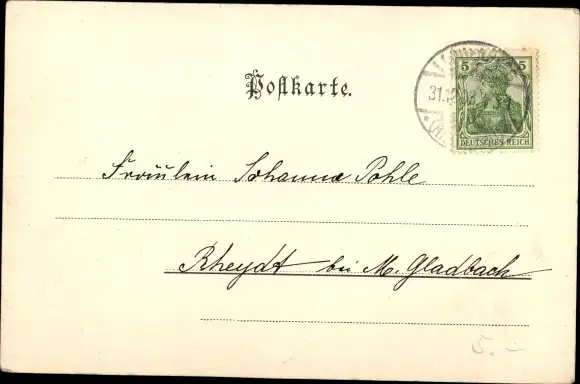 Postkarte.
5 5
31.12.
DEUTSCHES REICH
Fräulein Johanna Pohle
Rheydt bei M. Gladbach
5.-